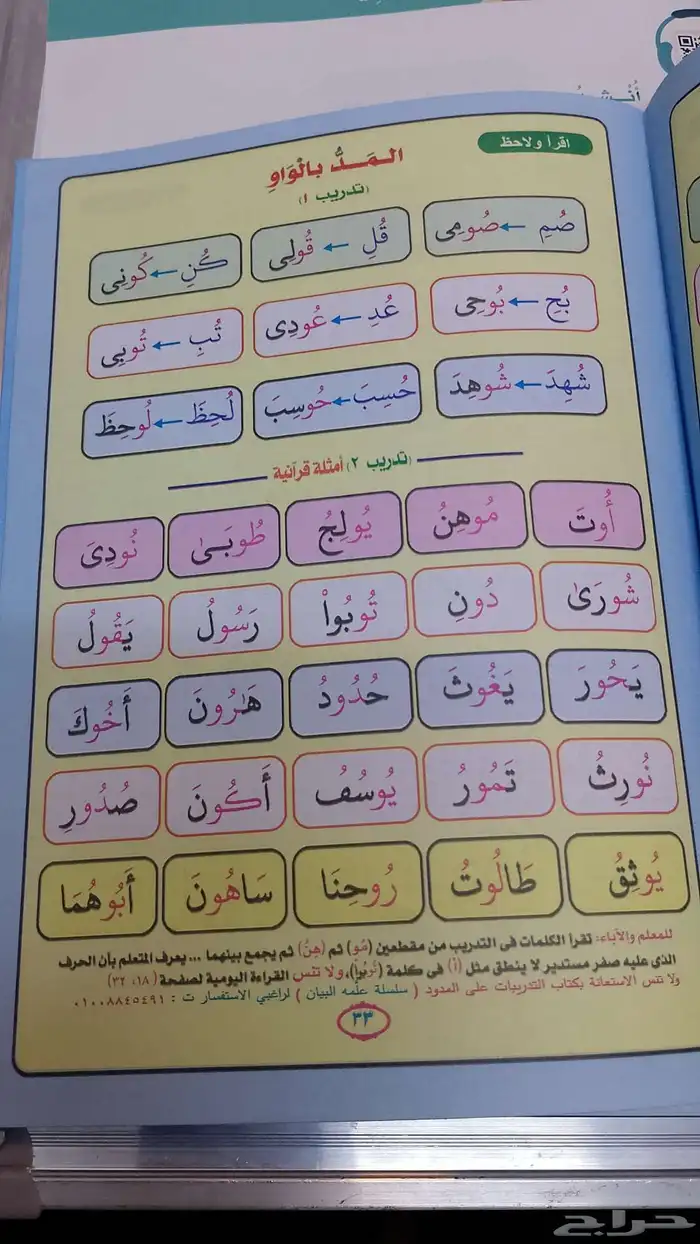 أُنْشِ
اقرأ ولاحظ
الـمَـدُّ بالْوَاوِ
(تدريب ١)
صُمِ ← صُومِى قُلِ ← قُولِى كُنِ ← كُونِى
بُحِ ← بُوحِى عُدِ ← عُودِى تُبِ ← تُوبِى
شُهِدَ ← شُوهِدَ حُسِبَ ← حُوسِبَ لُحِظَ ← لُوحِظَ
(تدريب ٢) أمثلة قرآنية
أُوتَ مُوهِنُ يُولِجُ طُوبَىٰ نُودِىَ
شُورَىٰ دُونِ تُوبُواْ رَسُولُ يَقُولُ
يَحُورَ يَغُوثَ حُدُودُ هَـٰرُونَ أَخُوكَ
نُورِثُ تَمُورُ يُوسُفُ أَكُونَ صُدُورِ
يُوثِقُ طَالُوتُ رُوحِنَا سَاهُونَ أَبُوهُمَا
للمعلم والآباء: تقرأ الكلمات فى التدريب من مقطعين (مُو) ثم (هِنُ) ثم يجمع بينهما ... يعرف المتعلم بأن الحرف
الذى عليه صفر مستدير لا ينطق مثل (اْ) فى كلمة (تُوبُواْ)، ولا تنس القراءة اليومية لصفحة (١٨، ٣٢)
ولا تنس الاستعانة بكتاب التدريبات على المدود ( سلسلة علمه البيان ) لراغبي الاستفسار ت : ٠١٠٠٨٨٤٥٤٩١
٣٣
حراج